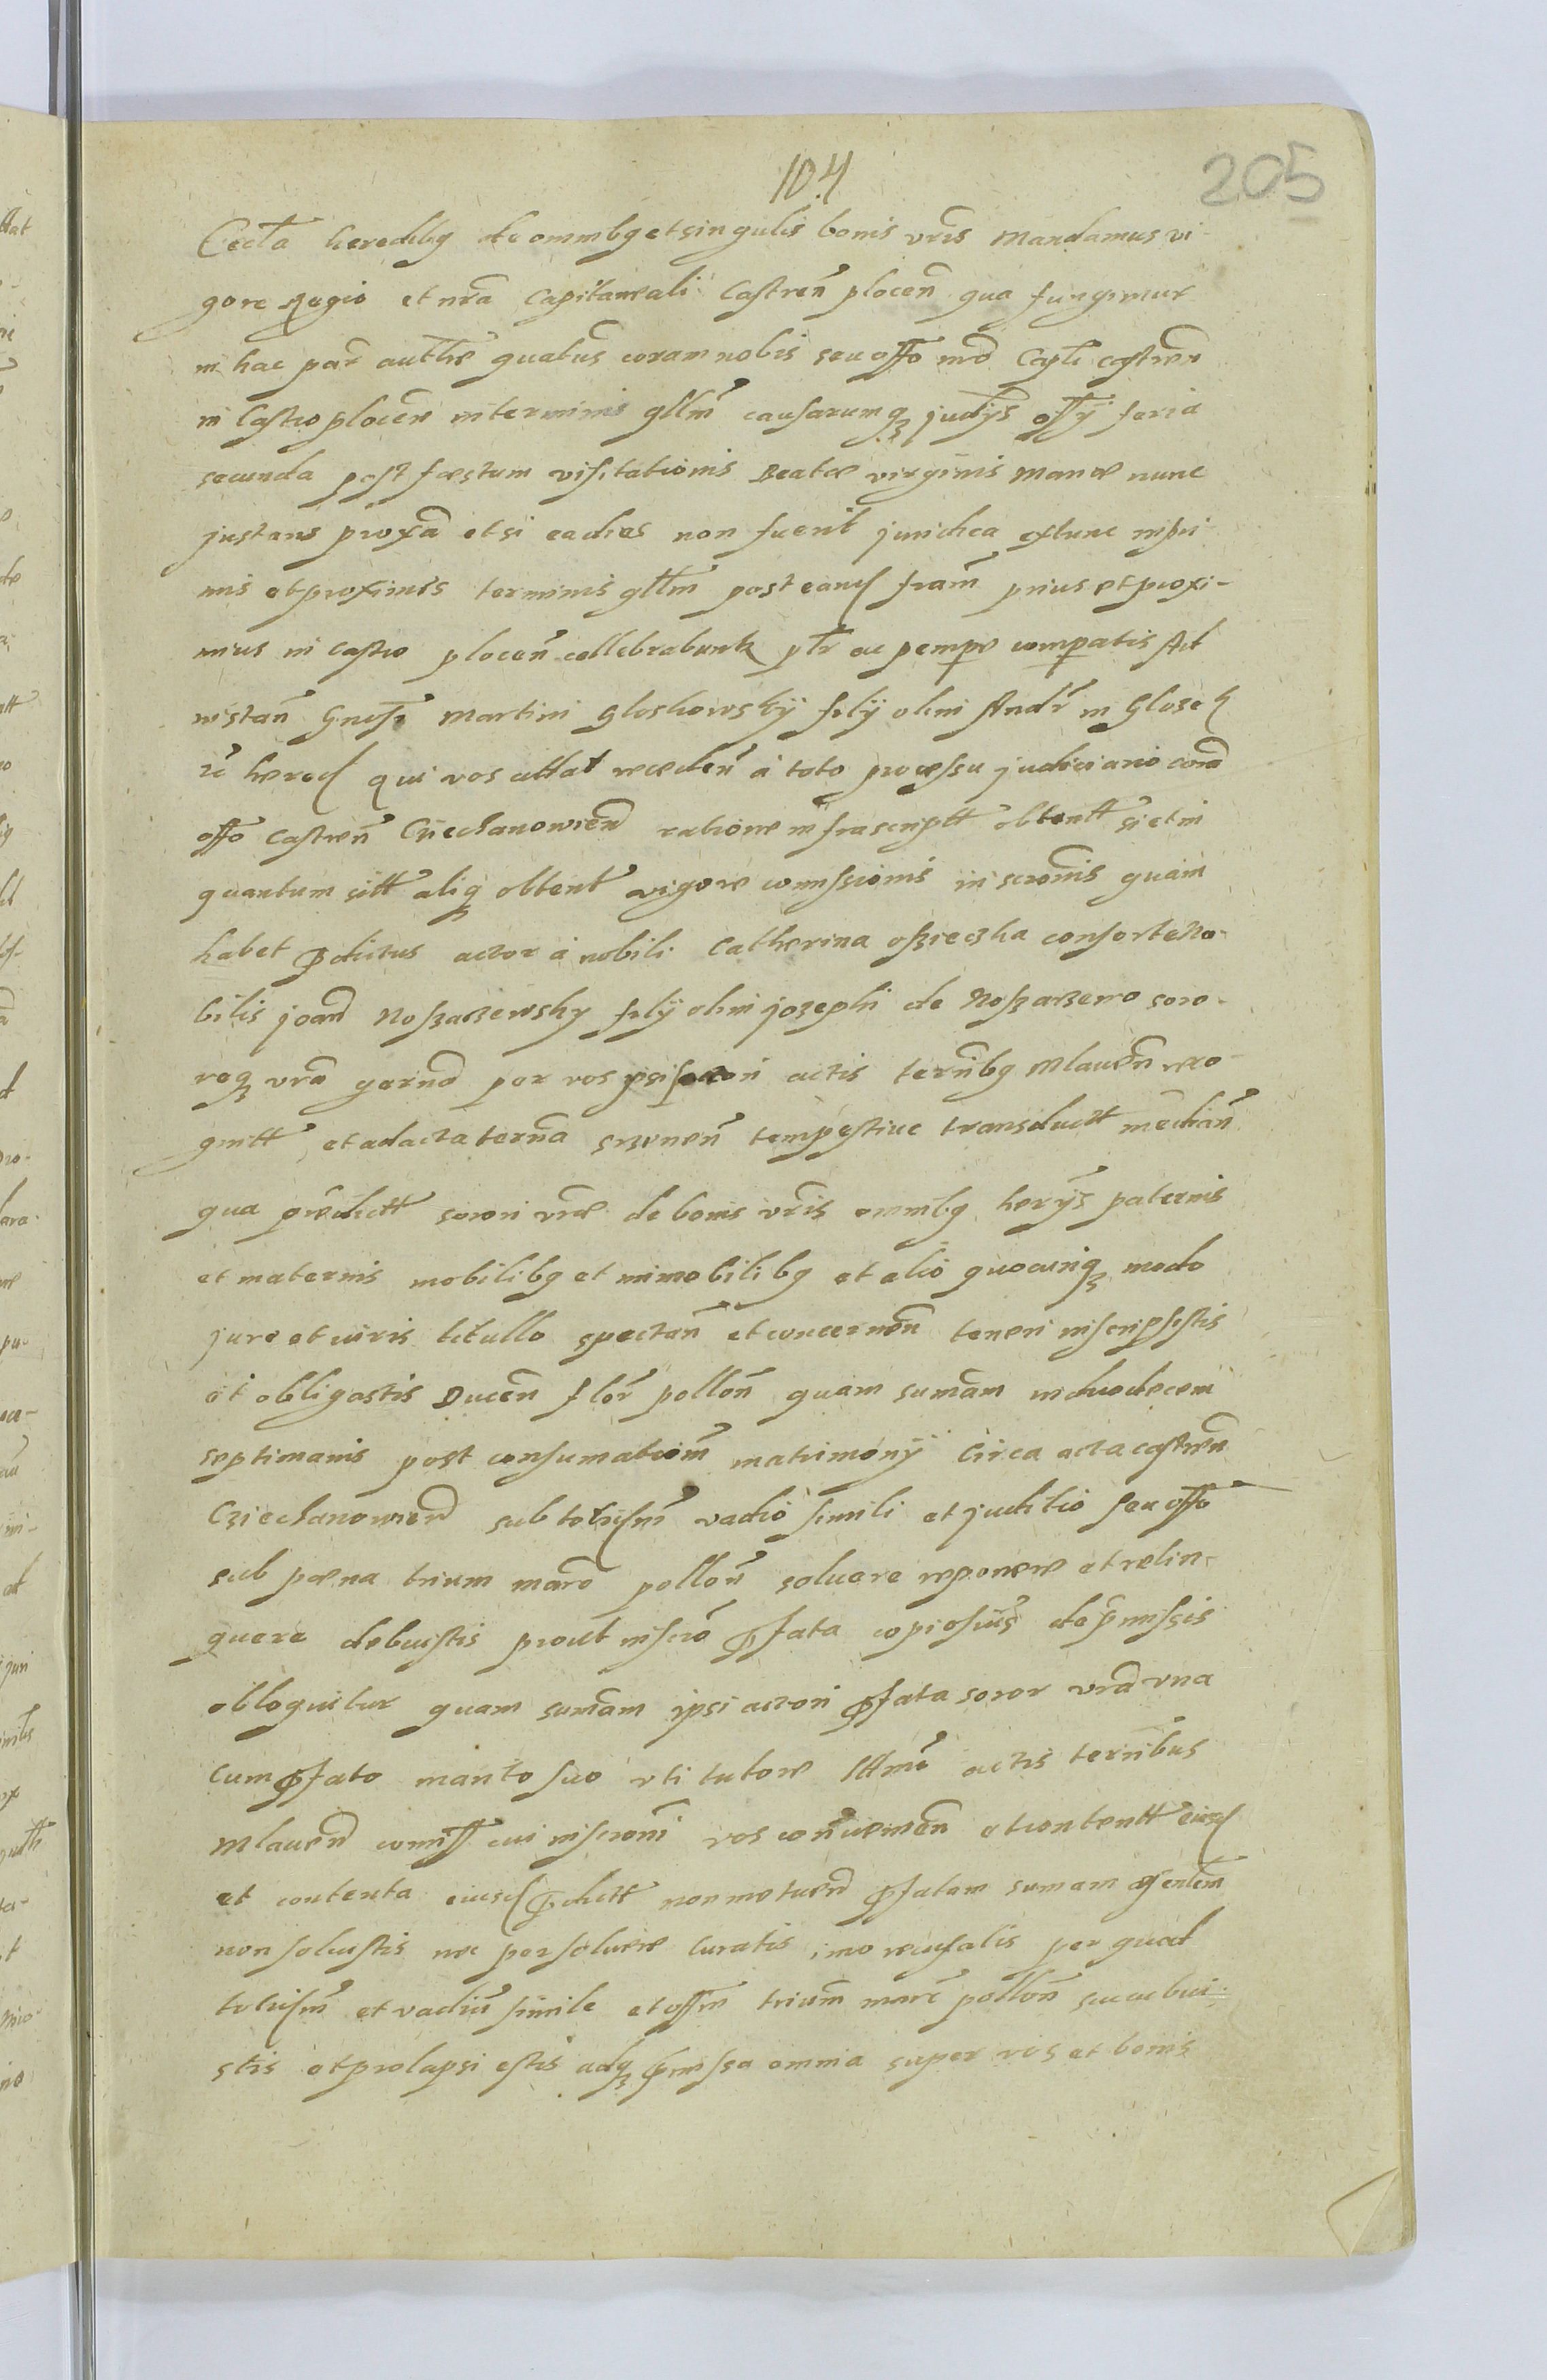 104
205
Cecta heredibg de omnibg et singulis bonis vris Mandamus vi-
gore Regio et nra Capitaneali Castren plocen qua fungimur
in hac par authte quatus coram nobis seu offo nro Capli castren
in Castro plocen in terminis gllm causarumq judijs offy feria
secunda post foestum visitationis Beatæ virginis Mariæ nunc
justans proxa et si eadies non fuerit juridica extunc in pri-
mis et proximis terminis gllm post eand fram prius et proxi-
mius in Castro plocen cellebrabunt ptr ac pempe compatis Ad
instan Gnosi Martini Gloskowskÿ filÿ olim Andr in Glosch
rc hered qui vos cittat reeden à toto processu judiciario cora
offo castren Ciiechanowien ratione infrascriptt obtentt si et in
quantum sitt aliq obtent vigore comissionis inscronis quam
habet pdictus actor à nobili Catherina oszieczka consorte No-
bilis joan Noszarzewsky filÿ olim jozephi de Noszarzewo soro-
roq vra germa per vos ipsi actori actis terribg Mlauen reco-
gnitt et ad acta terra srzenen tempestiue transductt median
qua predictt sorori vræ de bonis vris omnibg herÿs paternis
et maternis mobilibg et immobilibg et alio quocunq modo
jure et iuris titullo spectan et concernen teneri inscripsistis
et obligastis Ducen flor pollon quam sumam in duodecem
septimanis post consumationm matrimonÿ Circa acta castren
Cziechanowien sub totusm vadio simili et juditio seu offo
sub pœna trium marc pollon soluere reponere et relin-
quere debuistis prout inscro pfata copiosius de pmissis
obloquitur quam sumam ipsi actori pfata soror vra vna
cum pfato marito suo vti tutore lttmo actis terribus
Mlauen comiss cui inscroni vos conuenien et contentt eiusd
et contenta eiusd pdictt non metuen pfatam sumam psentem
non soluistis nec persoluere curatis imo recusatis per quod
totusm et vadiu simile et offm trium marc pollon succubui-
stis et prolapsi estis adq pmissa omnia super vos et bonis